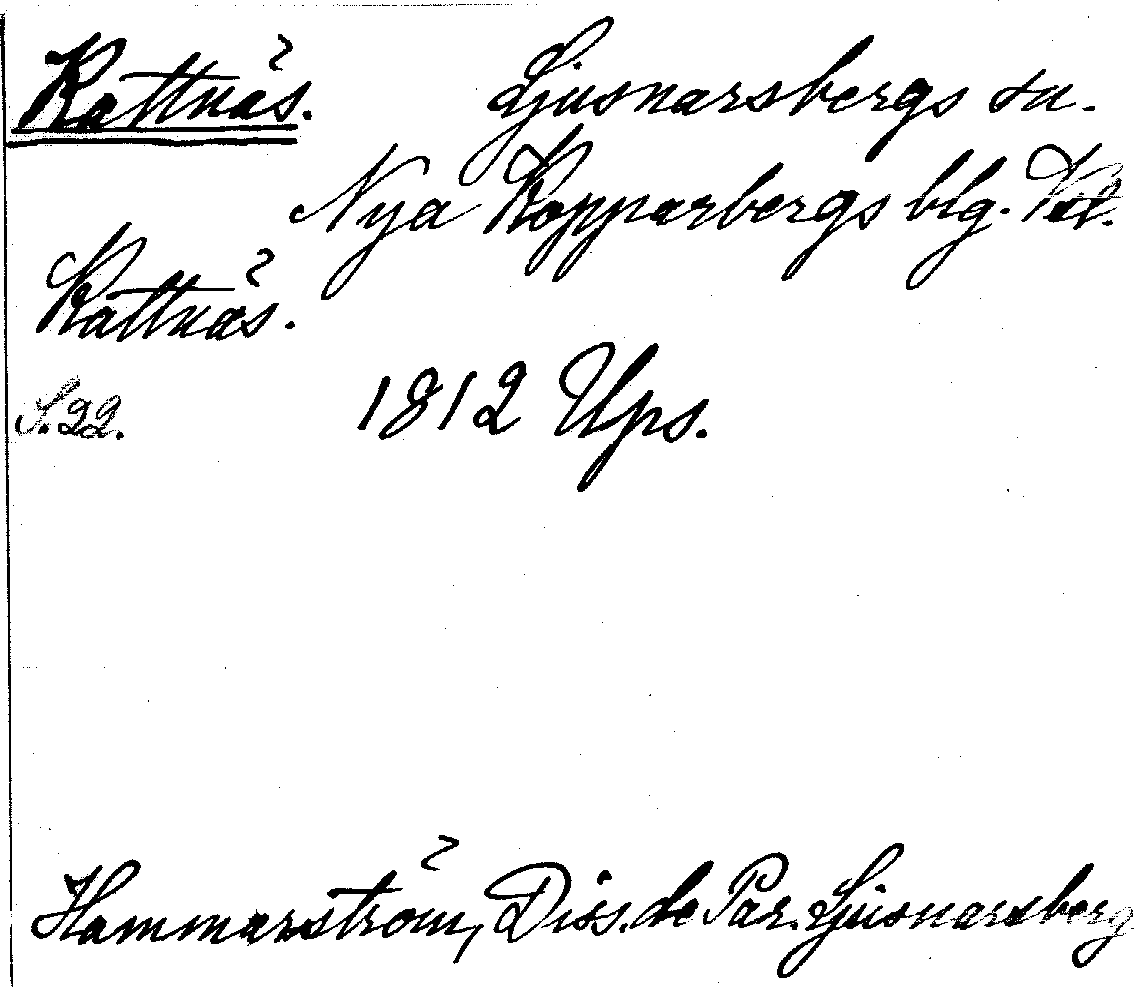 Kattnäs. Ljusnarsbergs sn.
Nya Kopparbergs blg. Vstl.
Kattnäs.
S. 22. 1812 Ups.
Hammarström, Diss. de Par. Ljusnarsberg